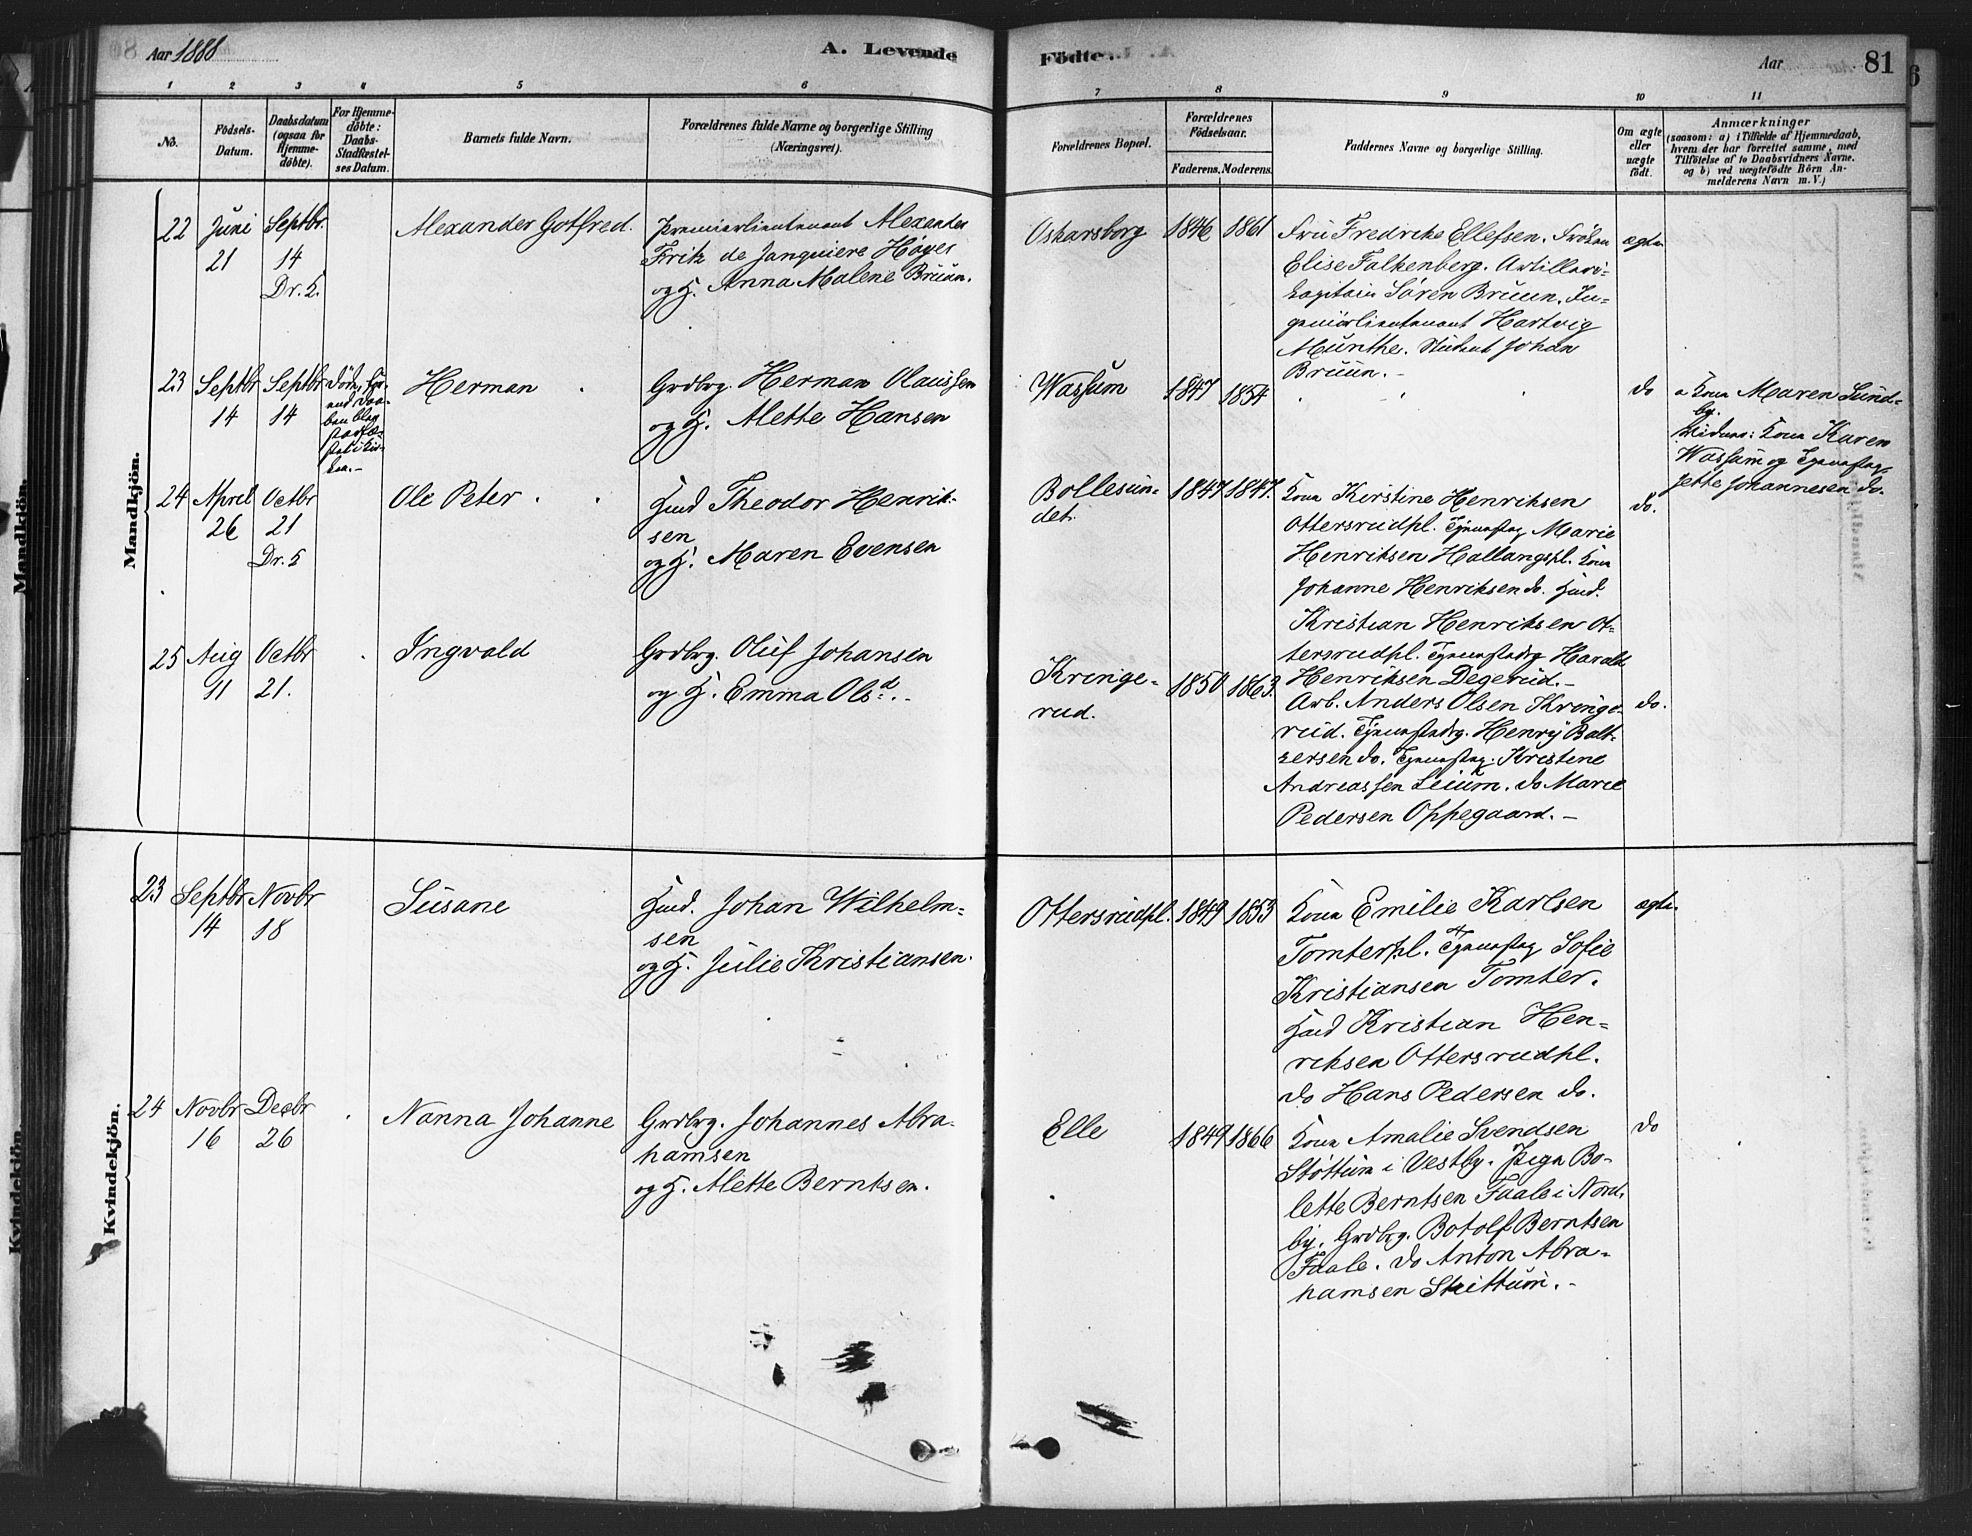 Aar 1888
A. Levende
Födte.
Aar
81
1 2 3 4 5 6 7 8 9 10 11
No.
Födsels-
Datum.
Daabsdatum
(ogsaa for
Hjemme-
döbte).
For Hjemme-
döbte:
Daabs-
Stadfæstel-
ses Datum.
Barnets fulde Navn.
Forældrenes fulde Navne og borgerlige Stilling
(Næringsvei).
Forældrenes Bopæl.
Forældrenes
Födselsaar.
Faderens. Moderens.
Faddernes Navne og borgerlige Stilling.
Om ægte
eller
uægte
födt.
Anmærkninger
(saasom: a) i Tilfælde af Hjemmedaab,
hvem der har forrettet samme, med
Tilföielse af to Daabsvidners Navne.
og b) ved uægtefödte Börn An-
melderens Navn m. V.)
Mandkjön.
22
Juni
21
Septbr.
14
Dr. k.
Alexander Gotfred.
Premierlieutenant Alexander
Fritz de Janquiere Høyer
og H. Anna Malene Bruun.
Oskarsborg
1846 1861
Fru Fredrike Ellefsen. Frøken
Elise Falkenberg. Artilleri-
kapitain Søren Bruun. In-
geniørlieutenant Hartvig
Munthe. Student Johan
Bruun.-
ægte
23
Septbr
14
Septbr
14
Herman
Grdbrg. Herman Olaussen
og H. Alette Hansen
Wassum
1847 1854
do
a Kone Maren Sund-
by.
Vidner: Kone Karen
Wassum og Tjenestpg.
Jette Johannesen do.
24
April
26
Octbr
21
Dr. k
Ole Peter
Husmd Theodor Henrik-
sen
og H. Maren Evensen
Bollesun-
det.
1847 1847.
Kone Kirstine Henriksen
Ottersrudpl. Tjenestpg Marie
Henriksen Hallangspl. Kone
Johanne Henriksen do. Husmd.
Kristian Henriksen Ot-
tersrudpl. Tjenestedrg Harald
Henriksen Degerud.-
do.
25
Aug
11
Octbr
21.
Ingvald
Grdbrg. Oluf Johansen
og H. Emma Olsd.-
Kringe-
rud.
1850 1863.
Arb. Anders Olsen Kringe-
rud. Tjenestedrg. Henry Balt-
zersen do. Tjenestpg. Kristine
Andreassen Leium. do Marie
Pedersen Oppegaard.-
do.
Kvindekjön.
23
Septbr
14
Novbr
18
Susane
Husmd. Johan Wilhelm-
sen
og H. Julie Kristiansen.
Ottersrudpl.
1849 1853
Kone Emilie Karlsen
Tomterpl. Tjenestpg Sofie
Kristiansen Tomter.
Husmd Kristian Hen-
riksen Ottersrudpl.
do Hans Pedersen do.
ægte.
24
Novbr
16
Decbr
26
Nanna Johanne
Grdbrg. Johannes Abra-
hamsen
og H. Alette Berntsen.
Elle
1849 1866
Kone Amalie Svendsen
Støttum i Vestby. Pige Bo-
lette Berntsen Faale i Nord-
by. Grdbrg. Botolf Berntsen
Faale. do Anton Abra-
hamsen Stuttum.-
do